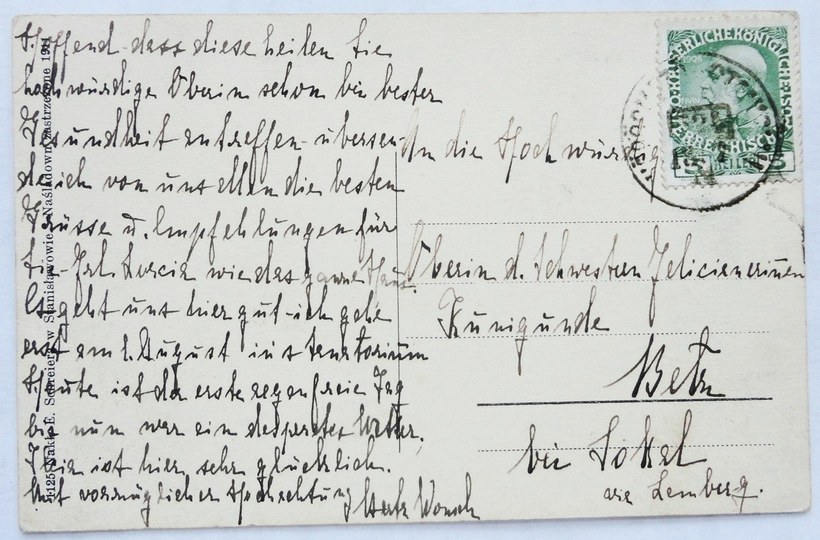 Hoffend dass diese heilen Sie
hochwürdige Oberin schon bei bester
Gesundheit antreffen übersen-
de ich von uns allen die besten
Grüsse u. Empfehlungen für
Sie wie das ganze Haus.
Es geht uns hier gut ich gehe
erst am 1. August ins Sanatorium
Heute ist der erste regenfreie Tag
bis nun war ein desperates Wetter,
ist hier sehr glücklich.
Mit vorzüglicher Hochachtung
An die Hochwürdige
Oberin d. Schwestern Felicienerinnen
Kunigunde
bei Sokal
via Lemberg.
Nakł. E. Schreiera w Stanisławowie. Naśladown. zastrzeżone 1911